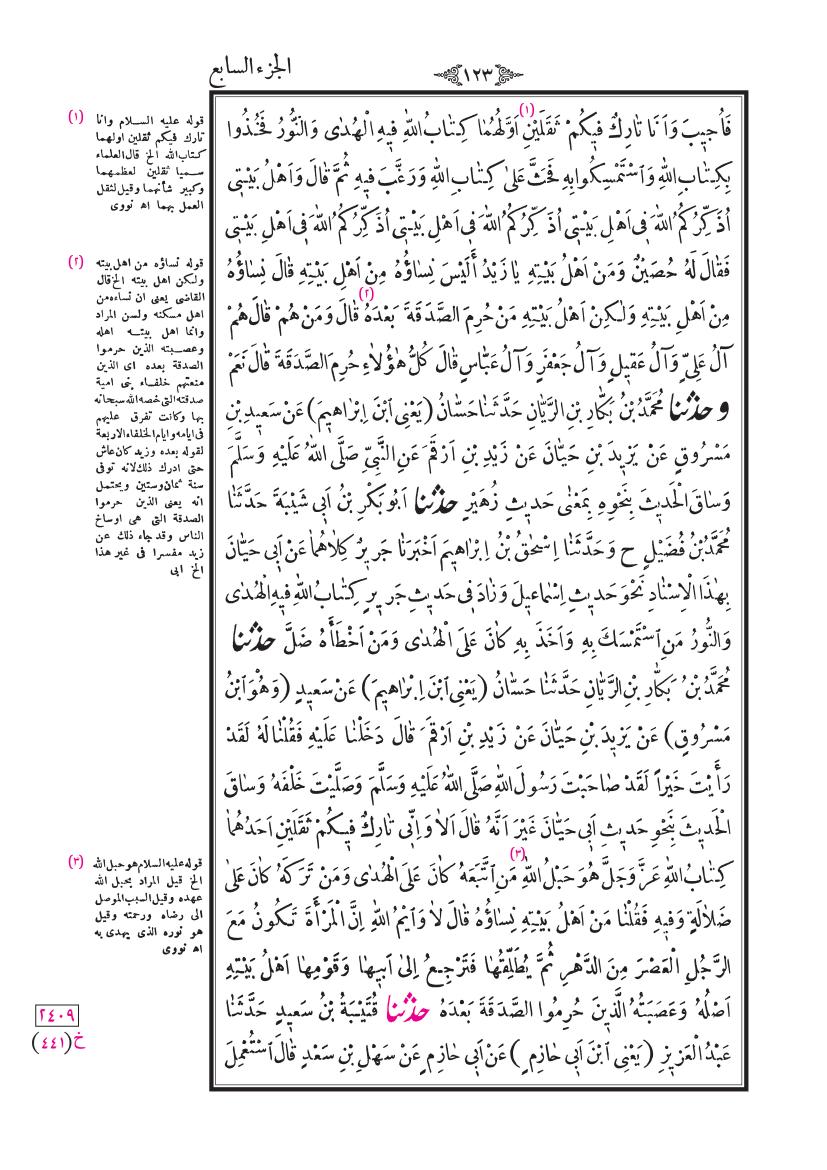 الجزء السابع
١٢٣
فَاُجِيبَ وَاَنَا تَارِكٌ فِيكُمْ ثَقَلَيْنِ (١) اَوَّلُهُمَا كِتَابُ اللّٰهِ فِيهِ الْهُدٰى وَالنُّورُ فَخُذُوا
بِكِتَابِ اللّٰهِ وَاسْتَمْسِكُوا بِهِ فَحَثَّ عَلٰى كِتَابِ اللّٰهِ وَرَغَّبَ فِيهِ ثُمَّ قَالَ وَاَهْلُ بَيْتِى
اُذَكِّرُكُمُ اللّٰهَ فِى اَهْلِ بَيْتِى اُذَكِّرُكُمُ اللّٰهَ فِى اَهْلِ بَيْتِى اُذَكِّرُكُمُ اللّٰهَ فِى اَهْلِ بَيْتِى
فَقَالَ لَهُ حُصَيْنٌ وَمَنْ اَهْلُ بَيْتِهِ يَا زَيْدُ أَلَيْسَ نِسَاؤُهُ مِنْ اَهْلِ بَيْتِهِ قَالَ نِسَاؤُهُ
مِنْ اَهْلِ بَيْتِهِ وَلٰكِنْ اَهْلُ بَيْتِهِ مَنْ حُرِمَ الصَّدَقَةَ بَعْدَهُ (٢) قَالَ وَمَنْ هُمْ قَالَ هُمْ
آلُ عَلِىٍّ وَآلُ عَقِيلٍ وَآلُ جَعْفَرٍ وَآلُ عَبَّاسٍ قَالَ كُلُّ هٰؤُلَاءِ حُرِمَ الصَّدَقَةَ قَالَ نَعَمْ
وحدثنا مُحَمَّدُ بْنُ بَكَّارِ بْنِ الرَّيَّانِ حَدَّثَنَا حَسَّانُ (يَعْنِى ابْنَ اِبْرَاهِيمَ) عَنْ سَعِيدِ بْنِ
مَسْرُوقٍ عَنْ يَزِيدَ بْنِ حَيَّانَ عَنْ زَيْدِ بْنِ اَرْقَمَ عَنِ النَّبِىِّ صَلَّى اللّٰهُ عَلَيْهِ وَسَلَّمَ
وَسَاقَ الْحَدِيثَ بِنَحْوِهِ بِمَعْنٰى حَدِيثِ زُهَيْرٍ حدثنا اَبُو بَكْرِ بْنُ اَبِى شَيْبَةَ حَدَّثَنَا
مُحَمَّدُ بْنُ فُضَيْلٍ ح وَحَدَّثَنَا اِسْحٰقُ بْنُ اِبْرَاهِيمَ اَخْبَرَنَا جَرِيرٌ كِلَاهُمَا عَنْ اَبِى حَيَّانَ
بِهٰذَا الْاِسْنَادِ نَحْوَ حَدِيثِ اِسْمَاعِيلَ وَزَادَ فِى حَدِيثِ جَرِيرٍ كِتَابُ اللّٰهِ فِيهِ الْهُدٰى
وَالنُّورُ مَنِ اسْتَمْسَكَ بِهِ وَاَخَذَ بِهِ كَانَ عَلَى الْهُدٰى وَمَنْ اَخْطَأَهُ ضَلَّ حدثنا
مُحَمَّدُ بْنُ بَكَّارِ بْنِ الرَّيَّانِ حَدَّثَنَا حَسَّانُ (يَعْنِى ابْنَ اِبْرَاهِيمَ) عَنْ سَعِيدٍ (وَهُوَ ابْنُ
مَسْرُوقٍ) عَنْ يَزِيدَ بْنِ حَيَّانَ عَنْ زَيْدِ بْنِ اَرْقَمَ قَالَ دَخَلْنَا عَلَيْهِ فَقُلْنَا لَهُ لَقَدْ
رَأَيْتَ خَيْراً لَقَدْ صَاحَبْتَ رَسُولَ اللّٰهِ صَلَّى اللّٰهُ عَلَيْهِ وَسَلَّمَ وَصَلَّيْتَ خَلْفَهُ وَسَاقَ
الْحَدِيثَ بِنَحْوِ حَدِيثِ اَبِى حَيَّانَ غَيْرَ اَنَّهُ قَالَ اَلَا وَاِنِّى تَارِكٌ فِيكُمْ ثَقَلَيْنِ اَحَدُهُمَا
كِتَابُ اللّٰهِ عَزَّ وَجَلَّ هُوَ حَبْلُ اللّٰهِ (٣) مَنِ اتَّبَعَهُ كَانَ عَلَى الْهُدٰى وَمَنْ تَرَكَهُ كَانَ عَلٰى
ضَلَالَةٍ وَفِيهِ فَقُلْنَا مَنْ اَهْلُ بَيْتِهِ نِسَاؤُهُ قَالَ لَا وَايْمُ اللّٰهِ اِنَّ الْمَرْأَةَ تَكُونُ مَعَ
الرَّجُلِ الْعَصْرَ مِنَ الدَّهْرِ ثُمَّ يُطَلِّقُهَا فَتَرْجِعُ اِلٰى اَبِيهَا وَقَوْمِهَا اَهْلُ بَيْتِهِ
اَصْلُهُ وَعَصَبَتُهُ الَّذِينَ حُرِمُوا الصَّدَقَةَ بَعْدَهُ حدثنا قُتَيْبَةُ بْنُ سَعِيدٍ حَدَّثَنَا
عَبْدُ الْعَزِيزِ (يَعْنِى ابْنَ اَبِى حَازِمٍ) عَنْ اَبِى حَازِمٍ عَنْ سَهْلِ بْنِ سَعْدٍ قَالَ اسْتُعْمِلَ
(١) قوله عليه السلام وانا
تارك فيكم ثقلين اولهما
كتاب الله الخ قال العلماء
سميا ثقلين لعظمهما
وكبير شأنهما وقيل لثقل
العمل بهما اه نووى
(٢) قوله نساؤه من اهل بيته
ولكن اهل بيته الخ قال
القاضى يعنى ان نساءه من
اهل مسكنه ولسن المراد
وانما اهل بيته اهله
وعصبته الذين حرموا
الصدقة بعده اى الذين
منعتهم خلفاء بنى امية
صدقته التى خصه الله سبحانه
بها وكانت تفرق عليهم
فى ايامه وايام الخلفاء الاربعة
لقوله بعده وزيد كان عاش
حتى ادرك ذلك لانه توفى
سنة ثمان وستين ويحتمل
انه يعنى الذين حرموا
الصدقة التى هى اوساخ
الناس وقد جاء ذلك عن
زيد مفسرا فى غير هذا
الخ ابى
(٣) قوله عليه السلام هو حبل الله
الخ قيل المراد بحبل الله
عهده وقيل السبب الموصل
الى رضاه ورحمته وقيل
هو نوره الذى يهدى به
اه نووى
٢٤٠٩
خ (٤٤١)